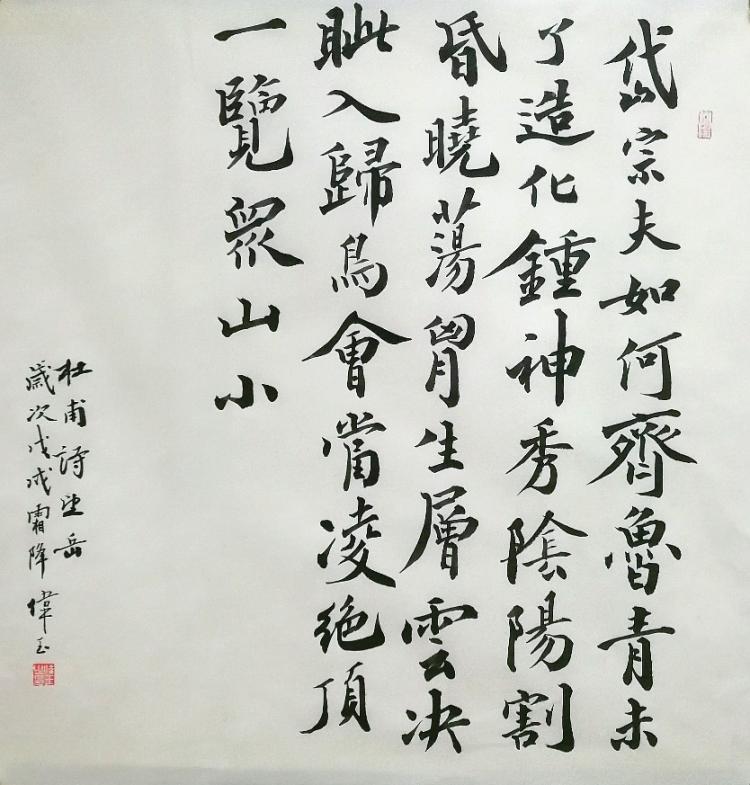 岱宗夫如何齊魯青未
了造化鍾神秀陰陽割
昏曉蕩胷生層雲决
眥入歸鳥會當凌绝頂
一覽眾山小
杜甫詩望岳
歲次戊戌霜降偉玉